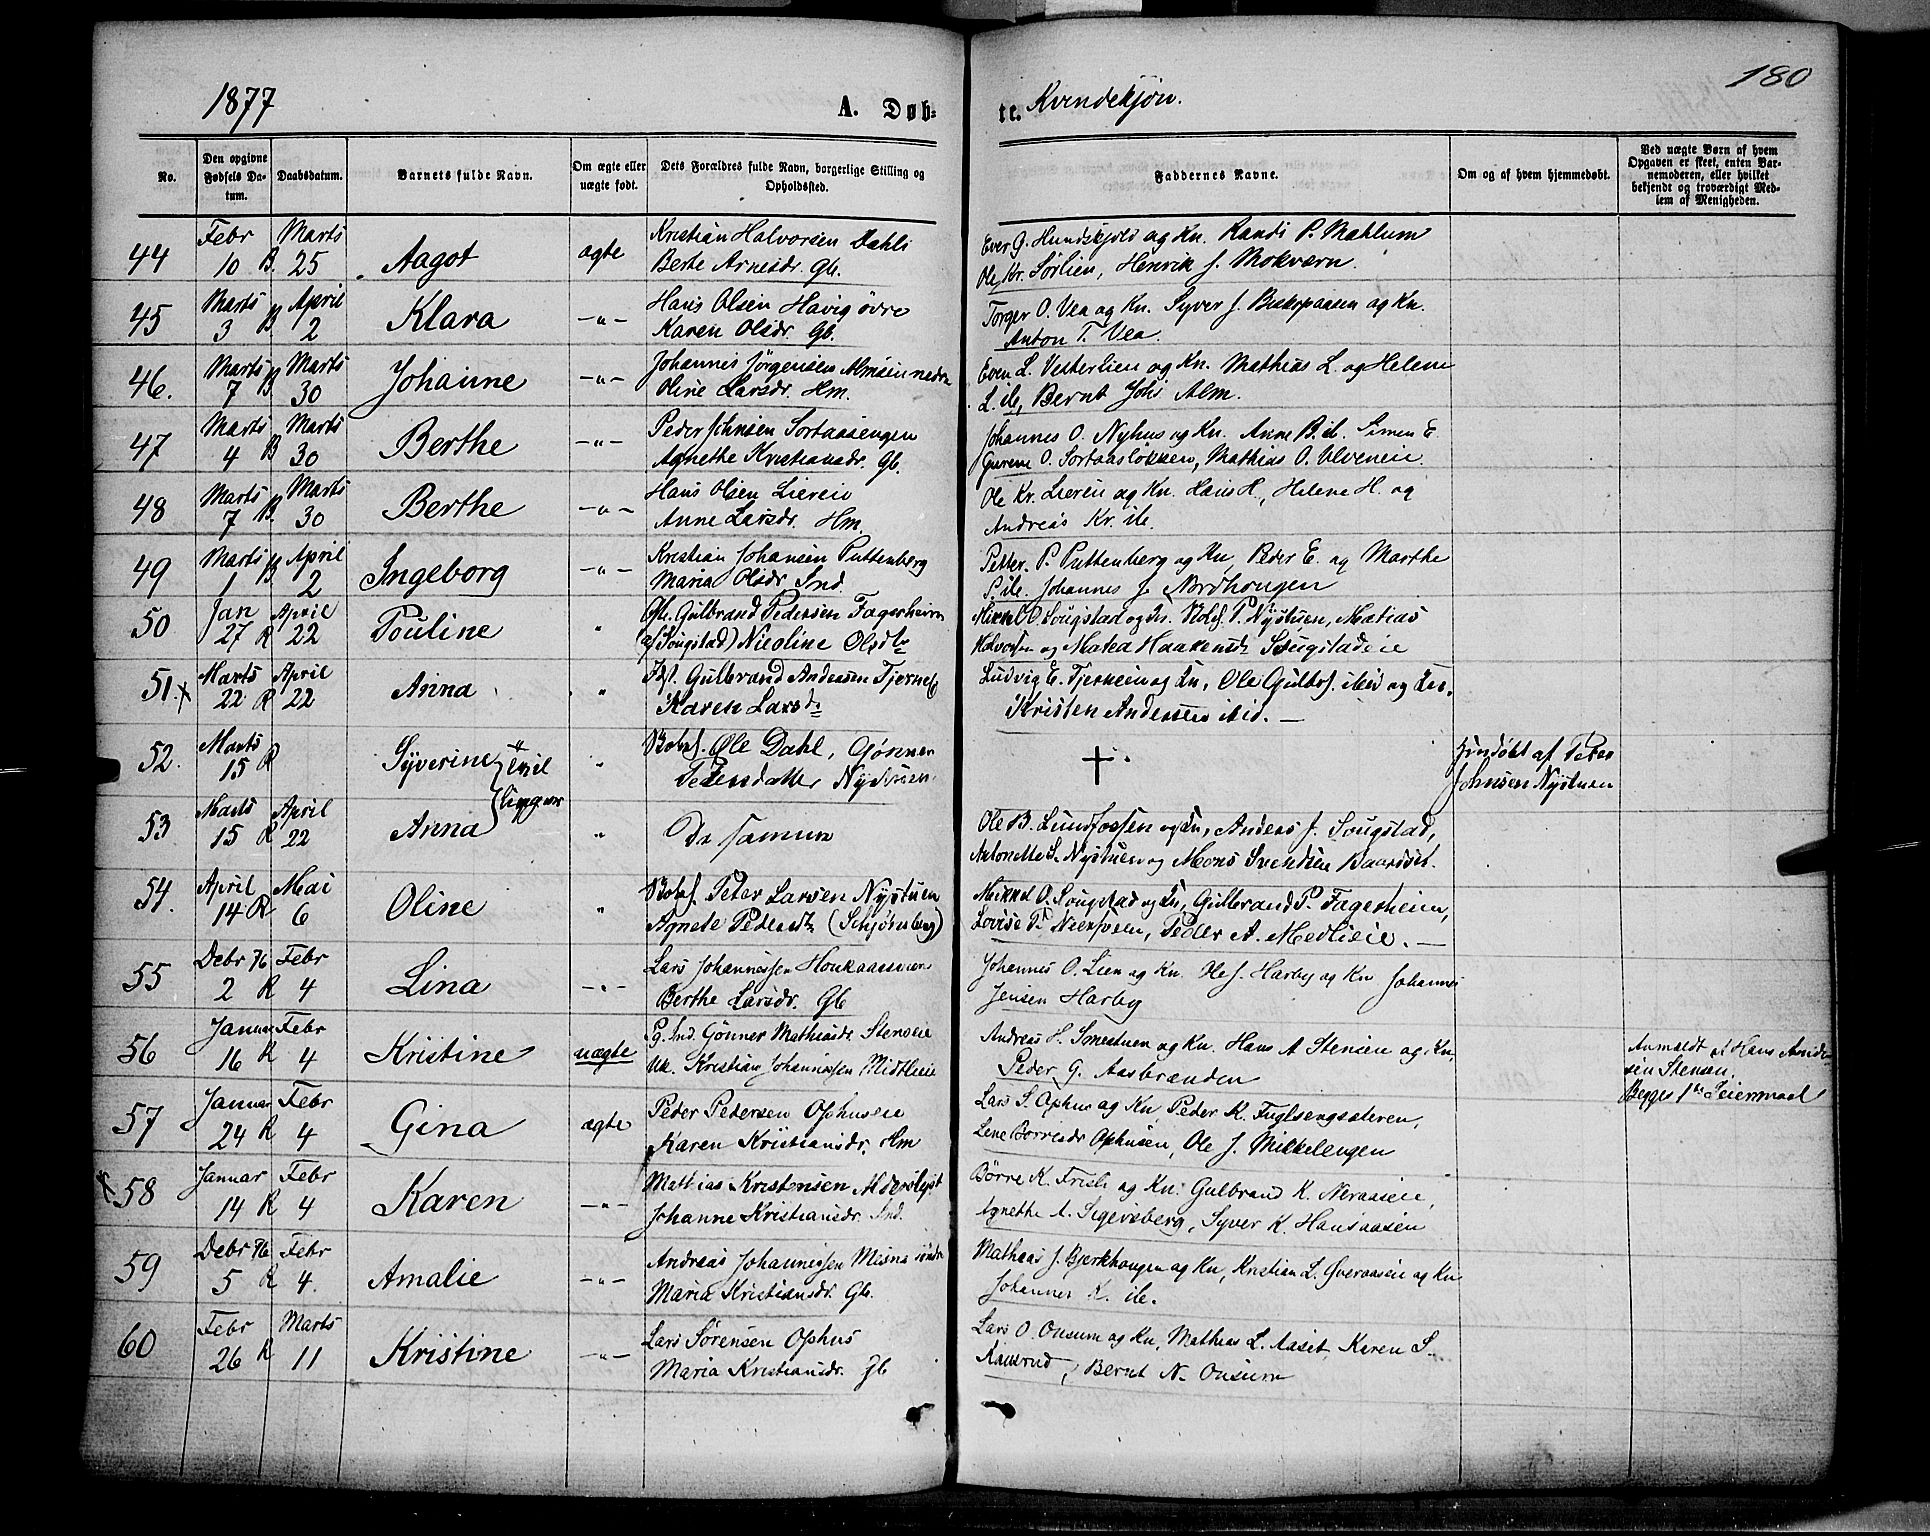 180
1877 A. Døb- te. Kvindekjøn.
No.
Den opgivne Fødsels Datum.
Daabsdatum.
Barnets fulde Navn.
Om ægte eller uægte født.
Dets Forældres fulde Navn, borgerlige Stilling og Opholdssted.
Faddernes Navne.
Om og af hvem hjemmedøbt.
Ved uægte Børn af hvem Opgaven er skeet, enten Barnemoderen, eller hvilket bekjendt og troværdigt Medlem af Menigheden.
44 Febr 10 B. Marts 25 Aagot ægte
Kristian Halvorsen Dahli
Berte Arnesdr. Gb.
Even G. Hundskjold og Kn. Randi P. Mahlum
Ole Kr. Sørlien, Henrik J. Mokværn.
45 Marts 3 B April 2 Klara -"-
Hans Olsen Havig øvre
Karen Olsdr. Gb.
Torger O. Vea og Kn. Syver J. Bispaasen og Kn.
Anton T. Vea.
46. Marts 7 B Marts 30 Johanne -"-
Johannes Jørgensen Almsein nedre
Oline Larsdr. Hm.
Even L. Vesterlien og Kn. Mathias L. og Helene
L. ib, Bernt Johs Alm.
47 Marts 4 B Marts 30 Berthe -"-
Peder Johnsen Sortaasengen
Agnethe Kristiansdr. Gb.
Johannes O. Nyhus og Kn. Anne B. ib. Simen E.
Gurene O. Sortaasløkken, Mathias O. Ulveneie.
48 Marts 7 B. Marts 30 Berthe -"-
Hans Olsen Liereie
Anne Larsdr. Hm.
Ole Kr. Liereie og Kn. Hans H., Helene H. og
Andreas Kr. ib.
49 Marts 1 B April 2 Ingeborg -"-
Kristian Johansen Puttenberg
Maria Olsdr. Ind.
Petter P. Puttenberg og Kn, Peder E. og Marthe
P. ib. Johannes J. Nordhougen
50 Jan 27 R April 22 Pouline "
Gb. Gulbrand Pedersen Fagerheim
af Sougstad) Nicoline Olsdtr
Mikkel O. Sougstad og Kn. P. Nystuen, Matias
Halvorsen og Matea Haakensdtr Sougstadeie
51 x Marts 22 R April 22 Anna "
Gulbrand Andersen Tjerne
Karen Larsdr
Ludvig E. Tjerheim og Kn, Ole Gulbr. ibid og Kn.
Kristen Andersen ibid. —
52. Marts 15 R Syverine Tvillinger "
Ole Dahl, Gønner
Pedersdatter Nystuen.
+.
Hjemdøbt af Peter
Johnsen Nystuen
53 Marts 15 R April 22 Anna "
De samme
Ole B. Lundfossen og Kn, Anders J. Sougstad,
Antonette S. Nystuen og Mons Svendsen Baardset.
54. April 14 R Mai 6 Oline "
Peter Larsen Nystuen
Agnete Pedersdtr (Schjønsberg)
Mikkel O. Sougstad og Kn, Gulbrand P. Fagerheim,
Lovise P. Neersveen, Peder A. Medlieie. —
55 Debr 76 2 R Febr 4 Lina -"-
Lars Johannessen Houkaasveen
Berthe Larsdr. Gb
Johannes O. Lien og Kn. Ole J. Harby og Kn Johannes
Jensen Harby
56 Januar 16 R Febr 4 Kristine uægte
Pg. Ind. Gønner Mathiasdr. Stenseie
Uk. Kristian Johannessen Midtlieie
Andreas H. Smestuen og Kn. Hans A Stensen og Kn,
Peder G. Aasbrænden
Anmeldt af Hans Andersen Stensen.
Begges 1ste Leiermaal
57 Januar 24 R Febr 4 Gina ægte
Peder Pedersen Ophuseie
Karen Kristiansdr. Hm
Lars S. Ophus og Kn, Peder K. Fuglsengsæteren,
Lene Børresdr Ophusen, Ole J. Mikkelengen
58 Januar 14 R Febr 4 Karen -"-
Mathias Kristensen Alderslyst
Johanne Kristiansdr. Ind.
Børre K. Frisli og Kn. Gulbrand K. Neraaseie,
Agnethe A. Sigersberg, Syver K. Hansaasen
59 Debr 76 5 R Febr 4. Amalie -"-
Andreas Johannessen Mesna søndr
Maria Kristiansdr. Gb.
Mathias J. Bjerkhougen og Kn, Kristian L. Øveraaseie og Kn
Johannes K. ib.
60 Febr 26 R Marts 11 Kristine -"-
Lars Sørensen Ophus
Maria Kristiansdr. Gb
Lars O. Onsum og Kn, Mathias L. Aaset, Karen S.
Kausrud, Bernt N. Onsum